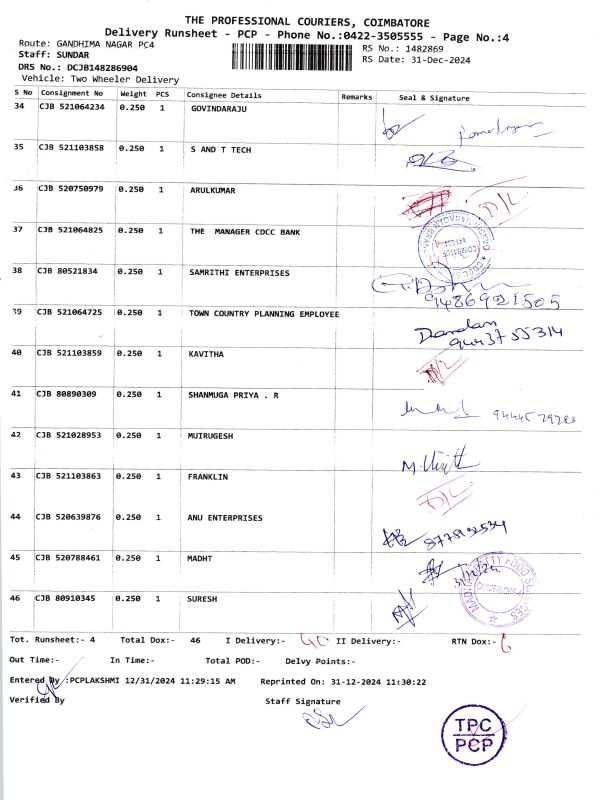 THE PROFESSIONAL COURIERS, COIMBATORE
Delivery Runsheet - PCP - Phone No.:0422-3505555 - Page No.:4
Route: GANDHIMA NAGAR PC4 RS No.: 1482869
Staff: SUNDAR RS Date: 31-Dec-2024
DRS No.: DCJB148286904
Vehicle: Two Wheeler Delivery
S No Consignment No Weight PCS Consignee Details Remarks Seal & Signature
34 CJB 521064234 0.250 1 GOVINDARAJU
35 CJB 521103858 0.250 1 S AND T TECH
36 CJB 520750979 0.250 1 ARULKUMAR D/L
37 CJB 521064825 0.250 1 THE MANAGER CDCC BANK
38 CJB 80521834 0.250 1 SAMRITHI ENTERPRISES
9486921505
39 CJB 521064725 0.250 1 TOWN COUNTRY PLANNING EMPLOYEE
9443755314
40 CJB 521103859 0.250 1 KAVITHA D/L
41 CJB 80890309 0.250 1 SHANMUGA PRIYA . R
42 CJB 521028953 0.250 1 MUIRUGESH
43 CJB 521103863 0.250 1 FRANKLIN D/L
44 CJB 520639876 0.250 1 ANU ENTERPRISES
45 CJB 520788461 0.250 1 MADHT
46 CJB 80910345 0.250 1 SURESH
Tot. Runsheet:- 4 Total Dox:- 46 I Delivery:- 40 II Delivery:- RTN Dox:- 6
Out Time:- In Time:- Total POD:- Delvy Points:-
Entered By :PCPLAKSHMI 12/31/2024 11:29:15 AM Reprinted On: 31-12-2024 11:30:22
Verified By Staff Signature
TPC
PCP